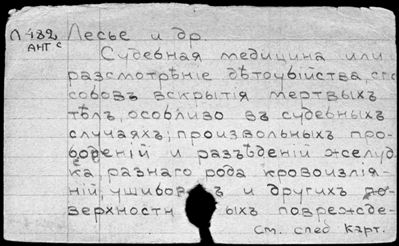 Л 482 Лесье и др.
Ант с
Судебная медицина или
разсмотрѣніе дѣтоубійства, спо
собовъ вскрытія мертвыхъ
тѣлъ, особливо въ судебныхъ
случаяхъ, произвольныхъ про-
боденій и разъѣденій желуд
ка, разнаго рода кровоизлія-
ній, ушибовъ и другихъ по-
верхностн ыхъ поврежде-
См. след карт.